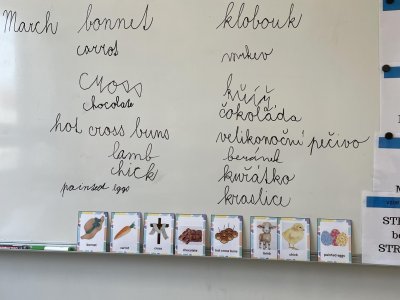 March bonnet klobouk
carrot mrkev
cross kříž
chocolate čokoláda
hot cross buns velikonoční pečivo
lamb beránek
chick kuřátko
painted eggs kraslice
bonnet carrot cross chocolate hot cross buns lamb chick painted eggs